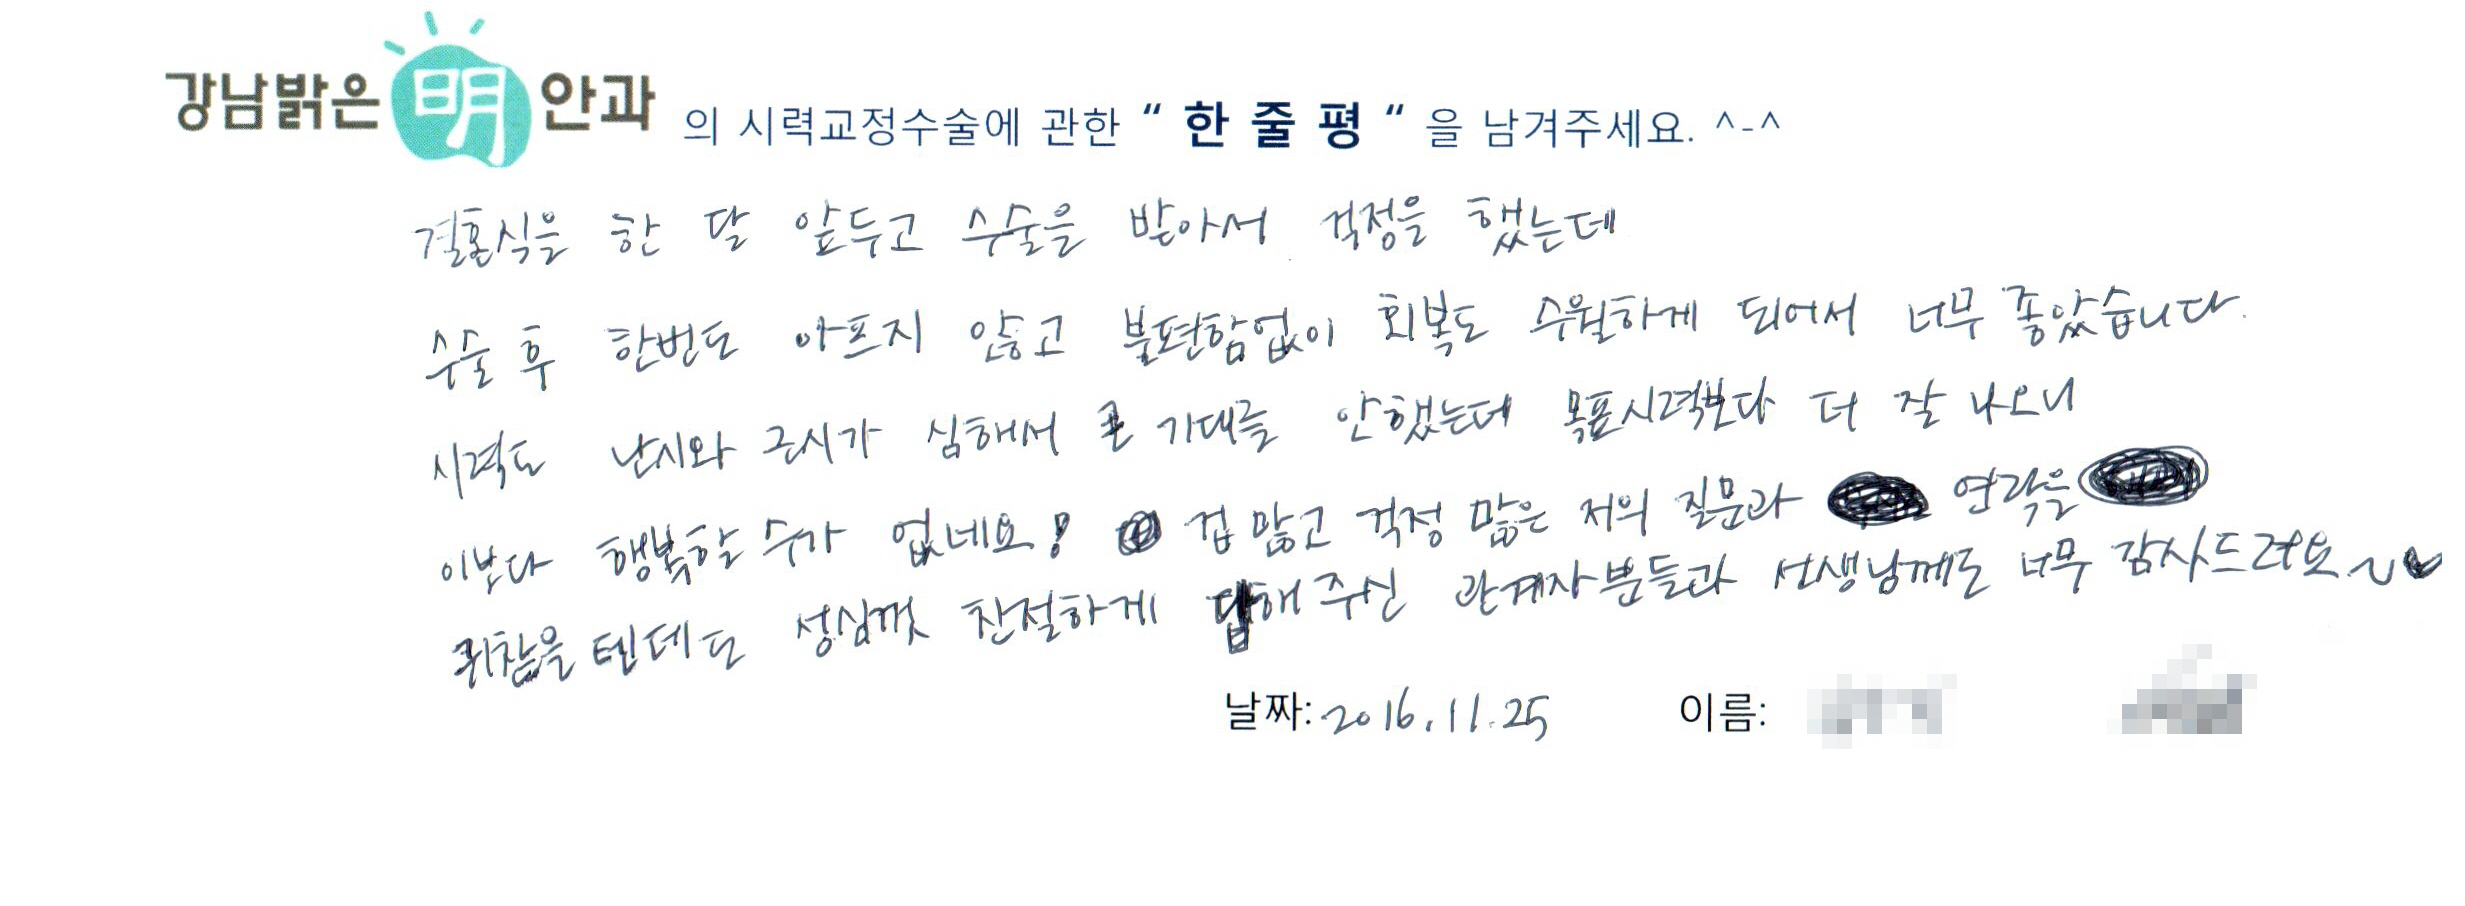 강남밝은 明 안과 의 시력교정수술에 관한 “ 한 줄 평 “ 을 남겨주세요. ^-^
결혼식을 한 달 앞두고 수술을 받아서 걱정을 했는데
수술 후 한번도 아프지 않고 불편함없이 회복도 수월하게 되어서 너무 좋았습니다.
시력도 난시와 근시가 심해서 큰 기대를 안했는데 목표시력보다 더 잘 나오니
이보다 행복할 수가 없네요! 겁 많고 걱정 많은 저의 질문과 연락을
귀찮을 텐데도 성심껏 친절하게 답해 주신 관계자분들과 선생님께도 너무 감사드려요~♥
날짜: 2016.11.25 이름: